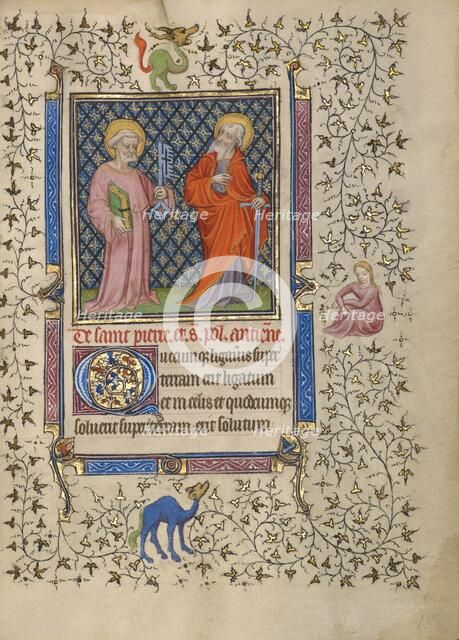 De saint pierre. et s. pol. antiene.
Quecunq; ligaueris super
terram erit ligatum
et in celis et quodcunq;
solueris super terram. erit solutum
Heritage
Heritage
Heritage
Heritage
Heritage
Heritage